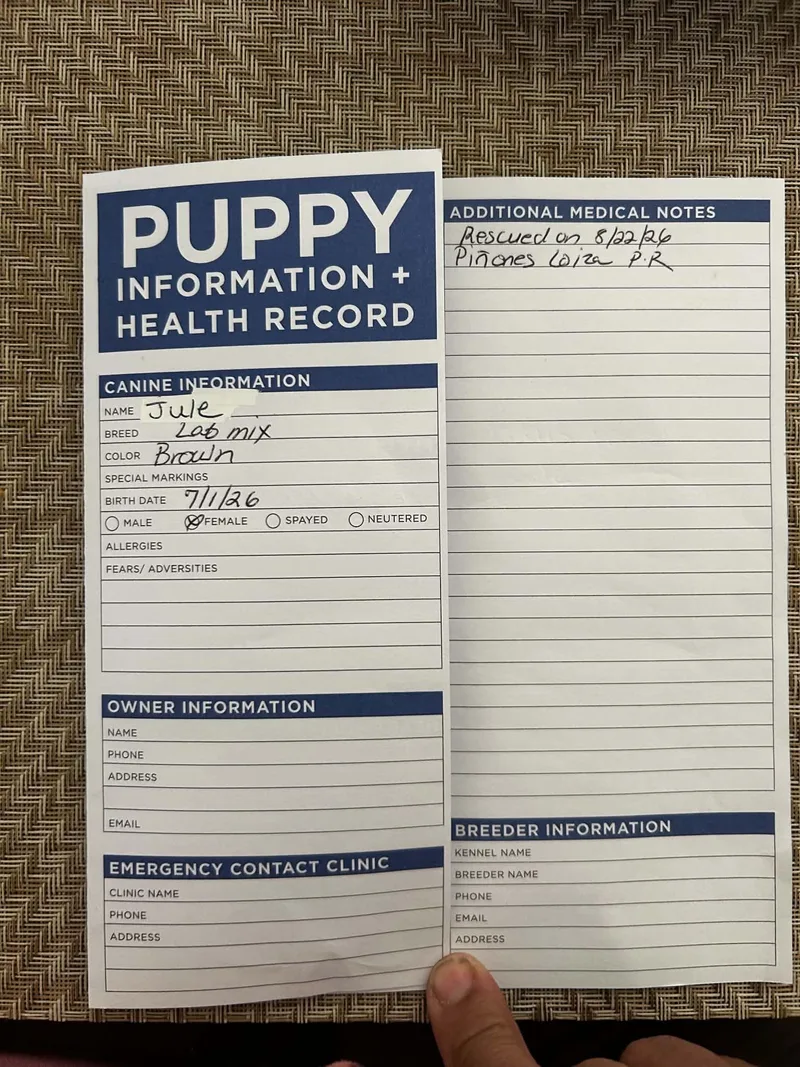 PUPPY
INFORMATION +
HEALTH RECORD
CANINE INFORMATION
NAME Jule
BREED Lab mix
COLOR Brown
SPECIAL MARKINGS
BIRTH DATE 7/1/26
MALE FEMALE SPAYED NEUTERED
ALLERGIES
FEARS/ ADVERSITIES
OWNER INFORMATION
NAME
PHONE
ADDRESS
EMAIL
EMERGENCY CONTACT CLINIC
CLINIC NAME
PHONE
ADDRESS
ADDITIONAL MEDICAL NOTES
Rescued on 8/22/26
Piñones Loiza P.R
BREEDER INFORMATION
KENNEL NAME
BREEDER NAME
PHONE
EMAIL
ADDRESS